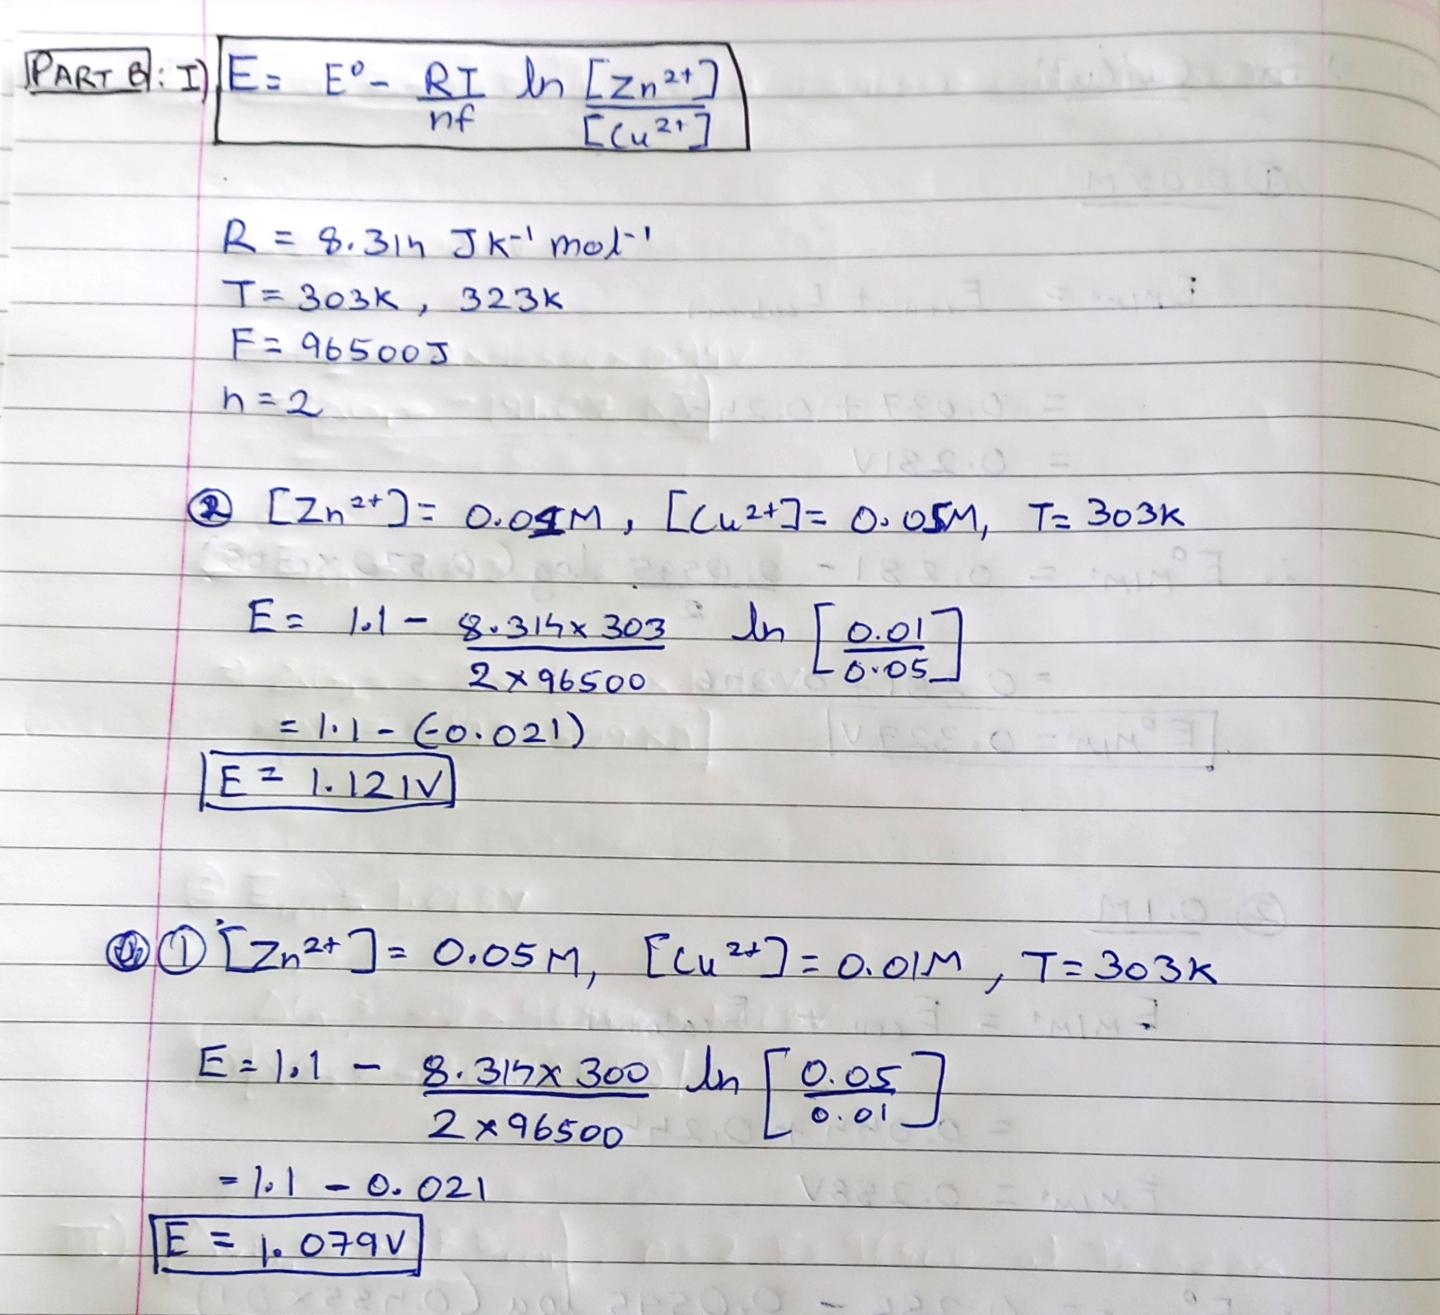 PART B: I) E = E° - RT/nf ln [Zn²⁺]/[Cu²⁺]
R = 8.314 JK⁻¹ mol⁻¹
T = 303K, 323K
F = 96500J
n = 2
② [Zn²⁺] = 0.01M, [Cu²⁺] = 0.05M, T = 303K
E = 1.1 - 8.314 x 303/2 x 96500 ln [0.01/0.05]
= 1.1 - (-0.021)
E = 1.121V
① [Zn²⁺] = 0.05M, [Cu²⁺] = 0.01M, T = 303K
E = 1.1 - 8.314 x 300/2 x 96500 ln [0.05/0.01]
= 1.1 - 0.021
E = 1.079V